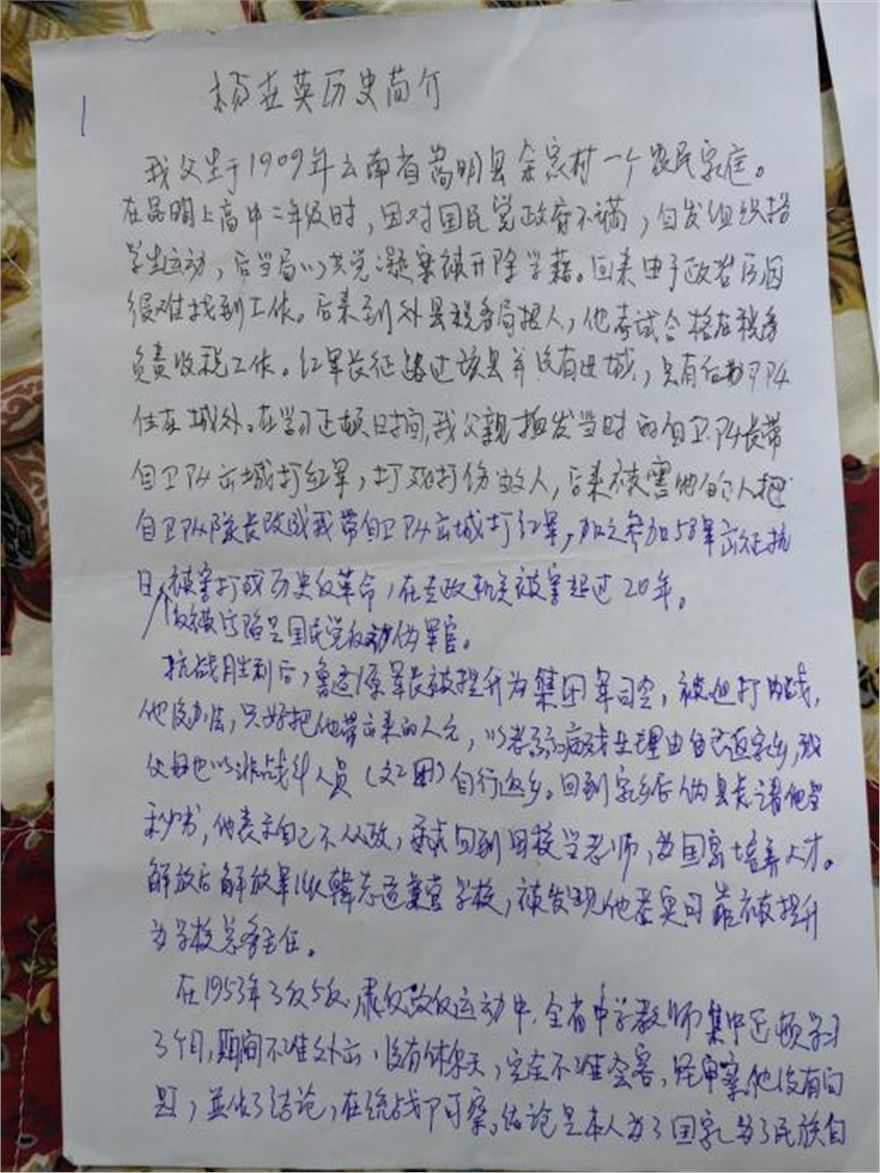 1
杨在英历史简介
我父生于1909年云南省嵩明县余家村一个农民家庭。
在昆明上高中二年级时,因对国民党政府不满,自发组织搞
学生运动,后当局以共党凝案被开除学藉。回来由于政治原因
很难找到工作。后来到外县税务局招人,他考试合格在税务
负责收税工作。红军长征路过该县并没有进城,只有
住在城外。在学习正顿时间,我父亲揭发当时的自卫队长带
自卫队出城打红军,打死打伤敌人,后来被害他的人把
自卫队队长改成我带自卫队出城打红军,加之参加58军出征抗
日,被害打成历史反革命,在专政机关被害超过20年。
反被污陷是国民党反动伪军官。
抗战胜利后,鲁道源军长被提升为集团军司令,被迫打内战,
他没办法,只好把他带出来的人员,以老弱病残理由自己返家乡,我
父母也以非战斗人员()自行返乡。回到家乡后伪县长请他当
秘书,他表示自己不从政,回到母校当老师,为国家培养人才。
解放后解放军韩志道兼管学校,被发现他忠实可靠被提升
为学校总务主任。
在1953年3反5反.肃反改反运动中.全省中学教师集中正顿学习
3个月,期间不准外出,没有休息天,完全不准会客,经审察他没有问
题,并做了结论,在统战部可察,结论是本人为了国家为了民族自